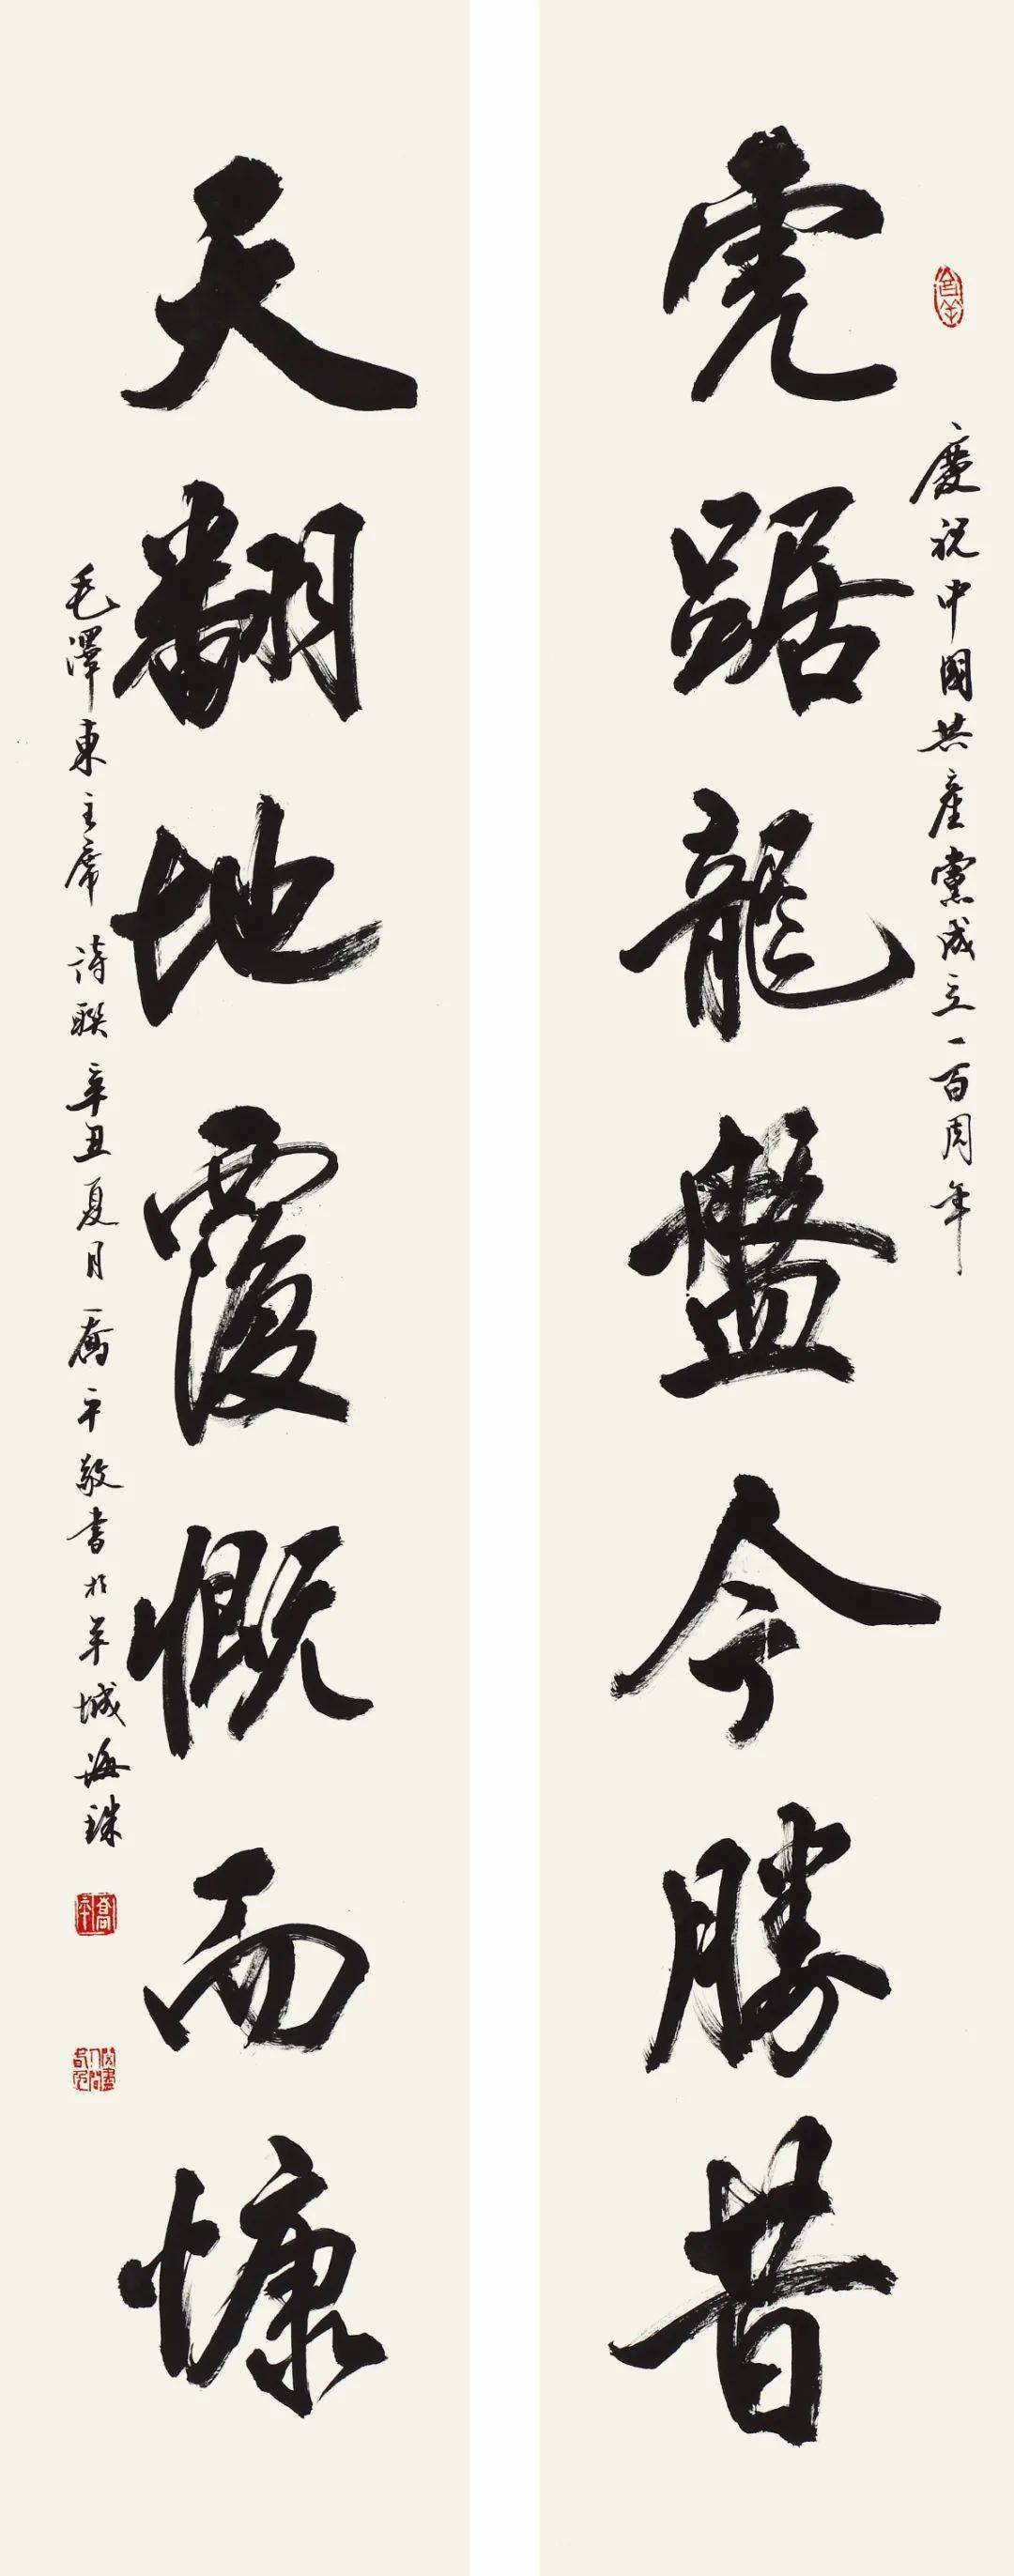 慶祝中國共産黨成立一百周年
虎踞龍盤今勝昔
天翻地覆慨而慷
毛澤東主席詩聯辛丑夏月喬平敬書於羊城海珠
喬平